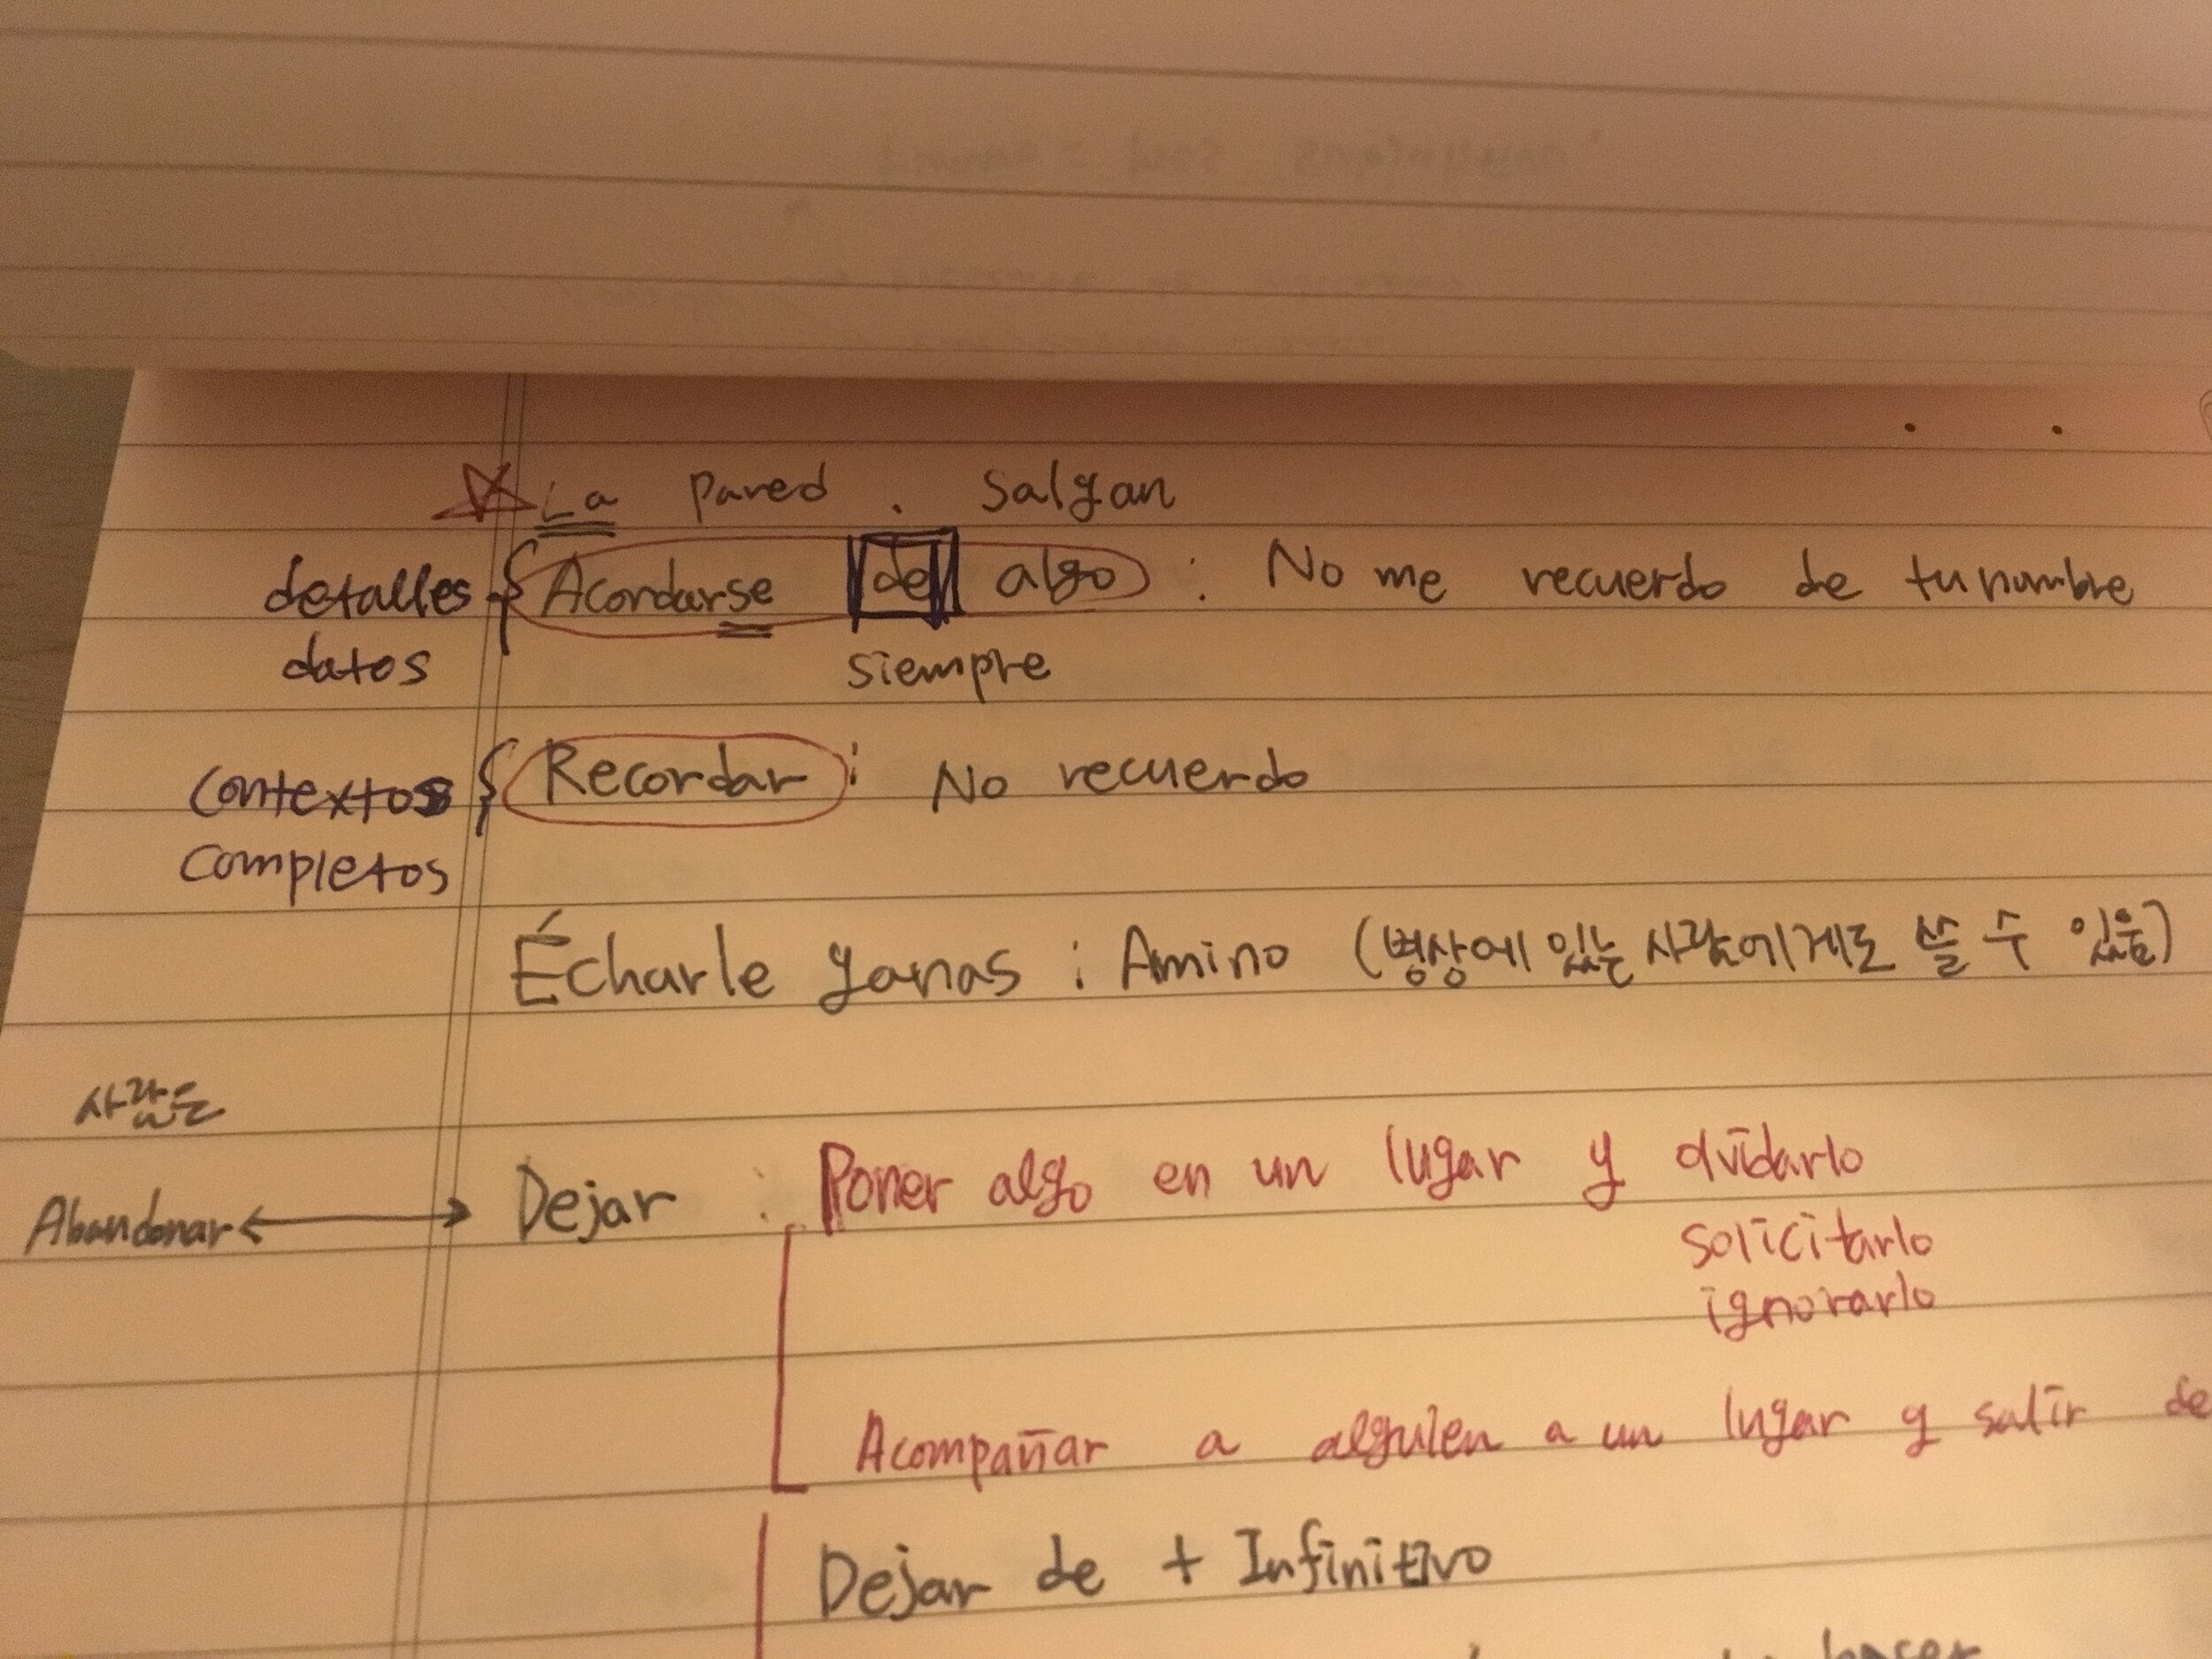 La pared . Salgan
detalles { Acordarse de algo : No me recuerdo de tu nombre
datos siempre
Contextos { Recordar : No recuerdo
Completos
Écharle ganas : Amino (병상에 있는 사람에게도 쓸 수 있음)
사람은
Abandonar ↔ Dejar : Poner algo en un lugar y olvidarlo
solicitarlo
ignorarlo
Acompañar a alguien a un lugar y salir de
Dejar de + Infinitivo
hacer